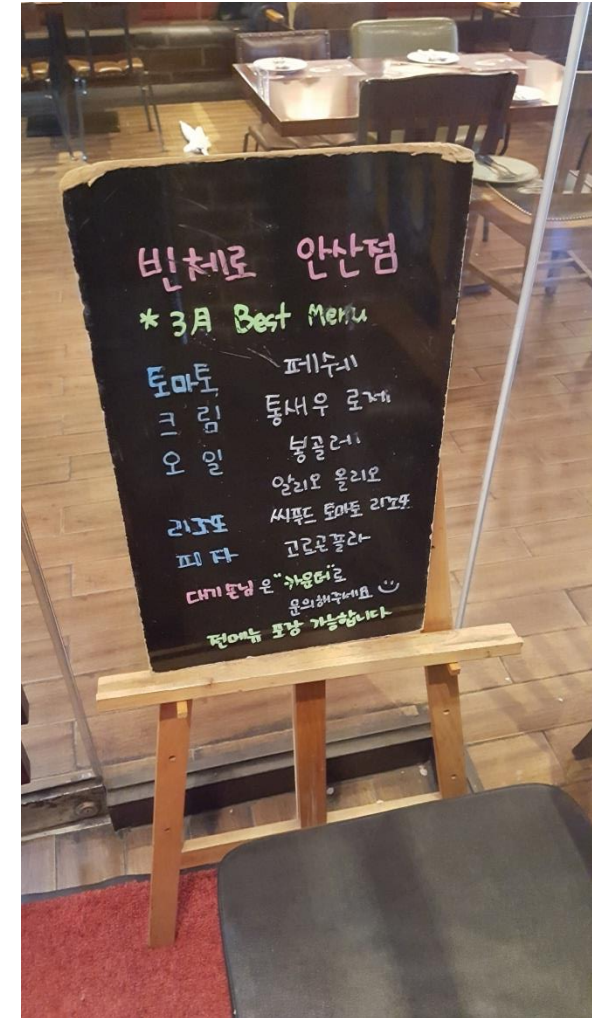 빈체로 안산점
* 3月 Best Menu
토마토 페쉐
크림 통새우 로제
오일 봉골레
알리오 올리오
리조또 씨푸드 토마토 리조또
피자 고르곤졸라
대기손님은 "카운터"로
문의해주세요
전메뉴 포장 가능합니다